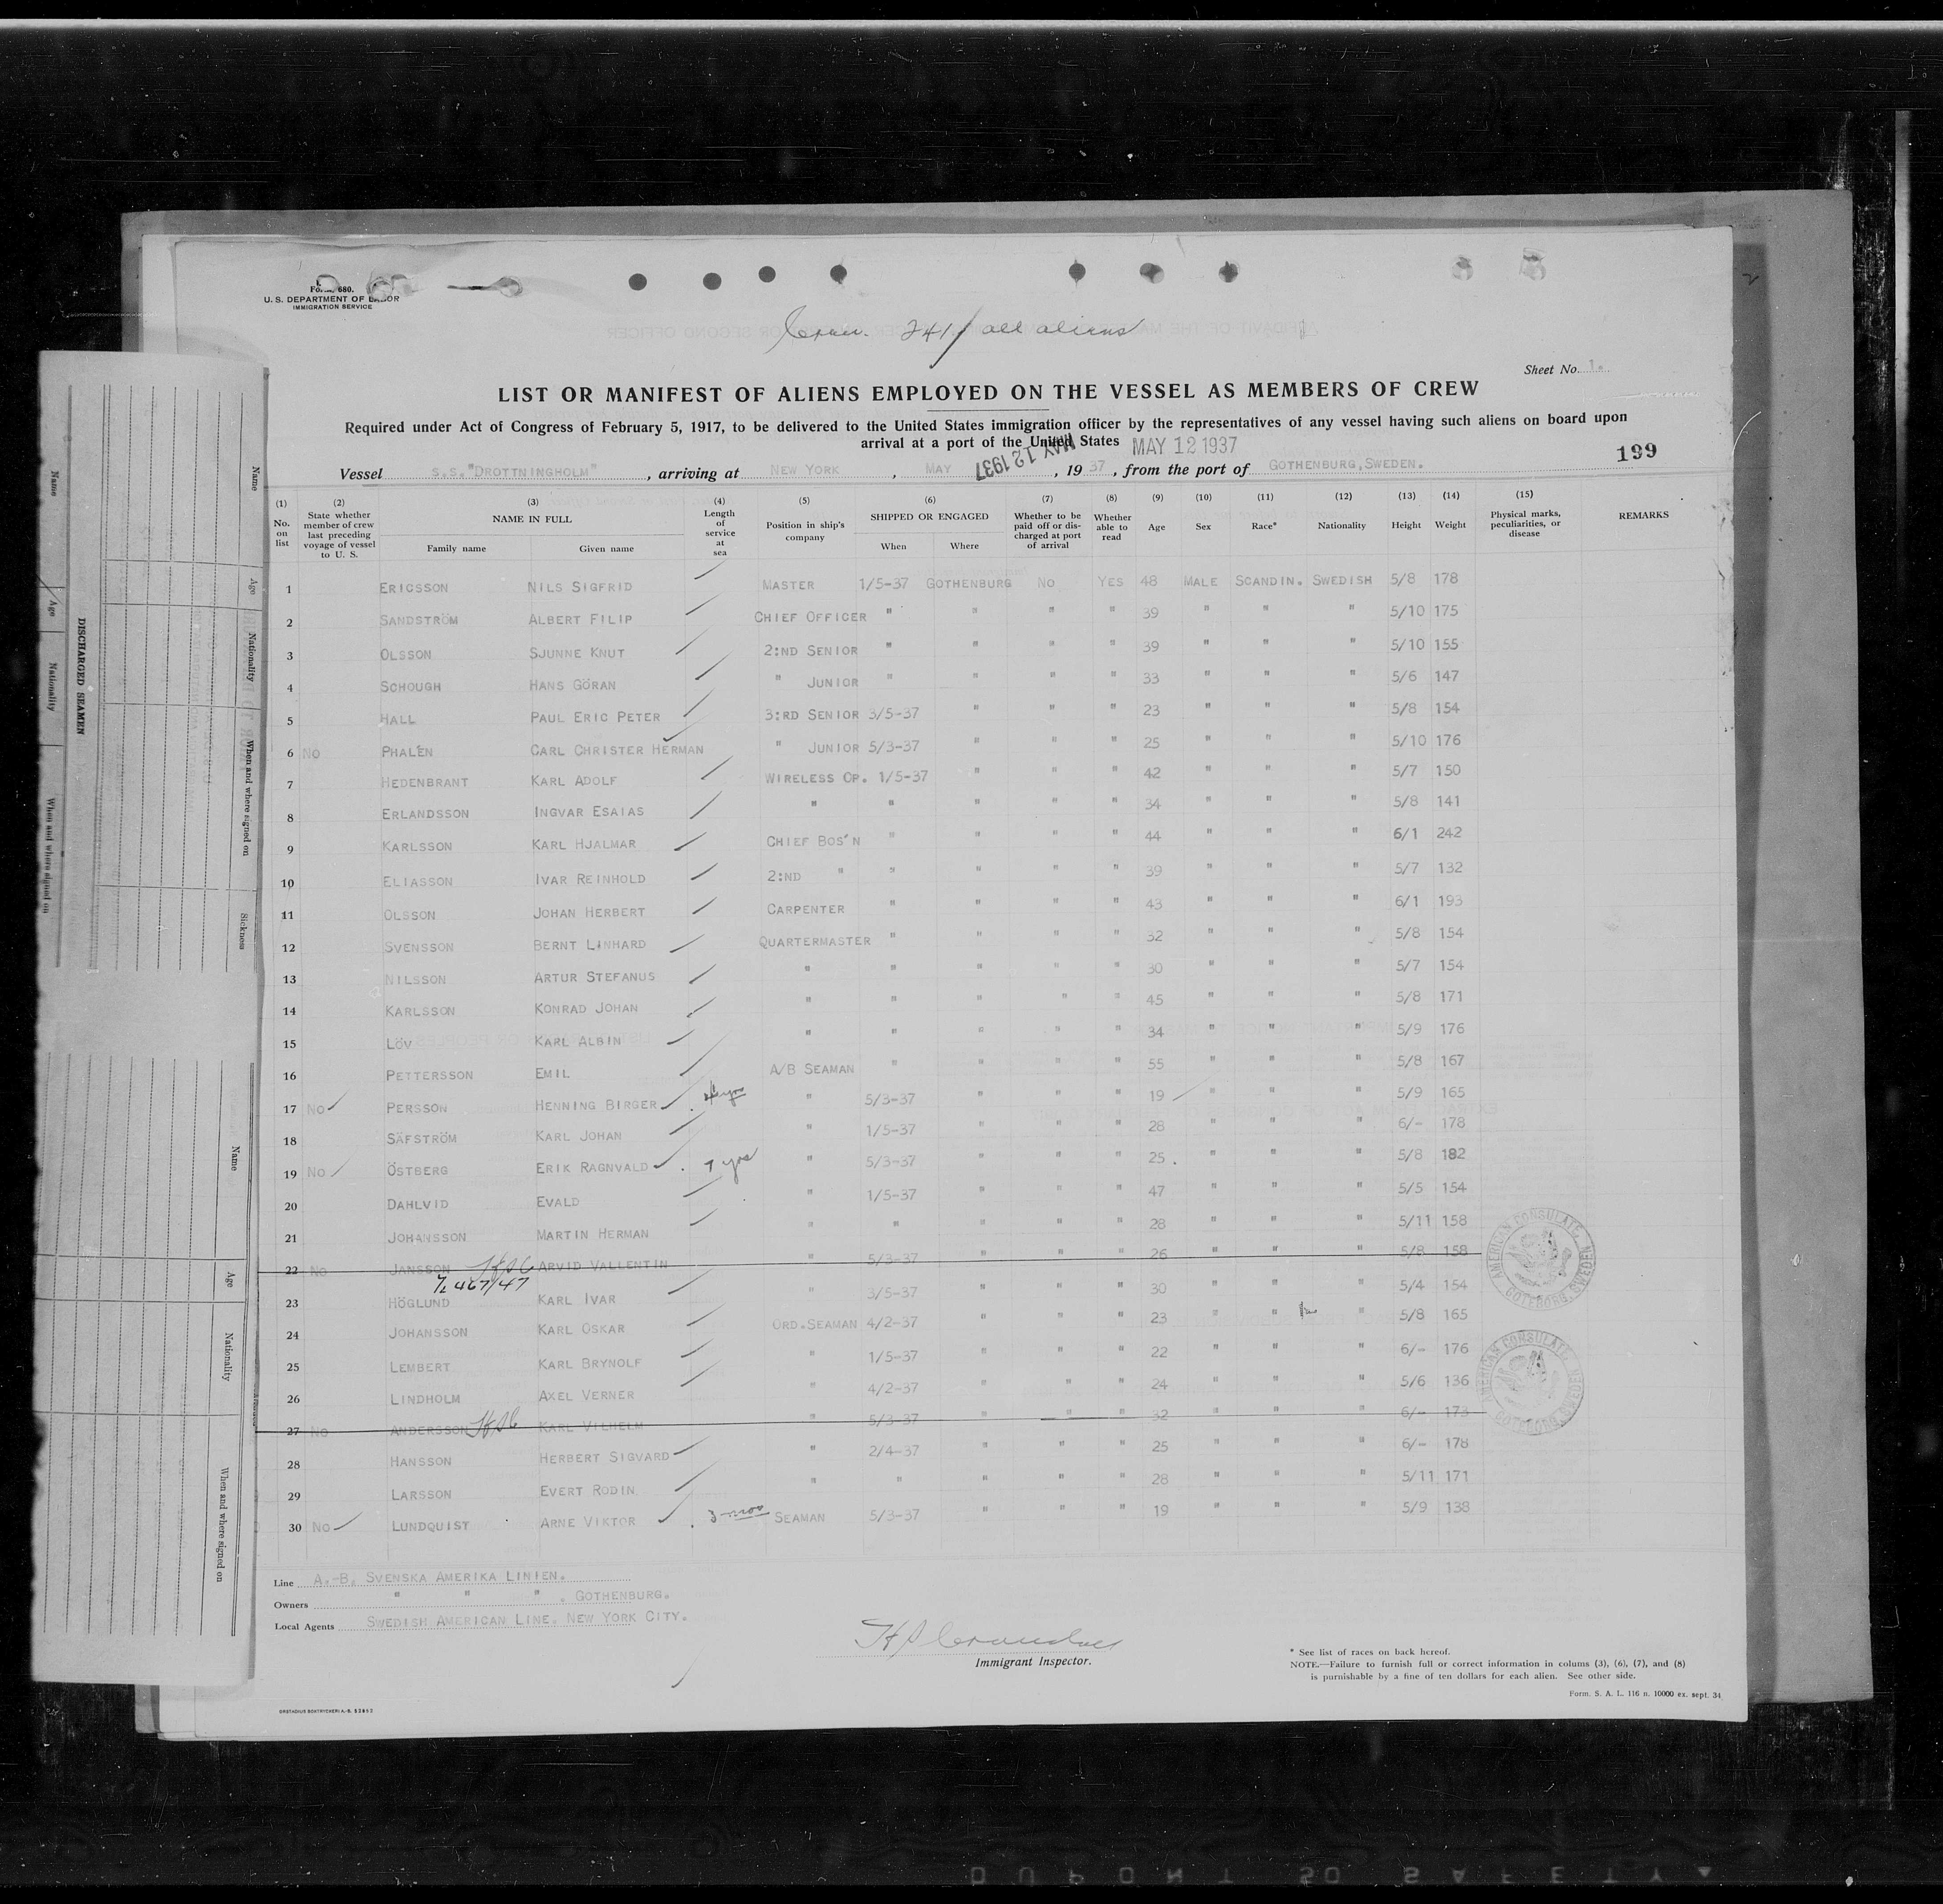 Form 680.
U. S. DEPARTMENT OF LABOR
IMMIGRATION SERVICE
Crew. 241 / all aliens
Sheet No. 1.
LIST OR MANIFEST OF ALIENS EMPLOYED ON THE VESSEL AS MEMBERS OF CREW
Required under Act of Congress of February 5, 1917, to be delivered to the United States immigration officer by the representatives of any vessel having such aliens on board upon
arrival at a port of the United States MAY 12 1937
199
Vessel S.S."DROTTNINGHOLM", arriving at NEW YORK, MAY MAY 12 1937, 1937, from the port of GOTHENBURG, SWEDEN.
(1) No. on list (2) State whether member of crew last preceding voyage of vessel to U. S. (3) NAME IN FULL Family name Given name (4) Length of service at sea (5) Position in ship's company (6) SHIPPED OR ENGAGED When Where (7) Whether to be paid off or discharged at port of arrival (8) Whether able to read (9) Age (10) Sex (11) Race* (12) Nationality (13) Height (14) Weight (15) Physical marks, peculiarities, or disease REMARKS
1 ERICSSON NILS SIGFRID MASTER 1/5-37 GOTHENBURG NO YES 48 MALE SCANDIN. SWEDISH 5/8 178
2 SANDSTRÖM ALBERT FILIP CHIEF OFFICER " " " " 39 " " " 5/10 175
3 OLSSON SJUNNE KNUT 2:ND SENIOR " " " " 39 " " " 5/10 155
4 SCHOUGH HANS GÖRAN " JUNIOR " " " " 33 " " " 5/6 147
5 HALL PAUL ERIC PETER 3:RD SENIOR 3/5-37 " " " 23 " " " 5/8 154
6 NO PHALÉN CARL CHRISTER HERMAN " JUNIOR 5/3-37 " " " 25 " " " 5/10 176
7 HEDENBRANT KARL ADOLF WIRELESS OP. 1/5-37 " " " 42 " " " 5/7 150
8 ERLANDSSON INGVAR ESAIAS " " " " " 34 " " " 5/8 141
9 KARLSSON KARL HJALMAR CHIEF BOS'N " " " " 44 " " " 6/1 242
10 ELIASSON IVAR REINHOLD 2:ND " " " " " 39 " " " 5/7 132
11 OLSSON JOHAN HERBERT CARPENTER " " " " 43 " " " 6/1 193
12 SVENSSON BERNT LINHARD QUARTERMASTER " " " " 32 " " " 5/8 154
13 NILSSON ARTUR STEFANUS " " " " " 30 " " " 5/7 154
14 KARLSSON KONRAD JOHAN " " " " " 45 " " " 5/8 171
15 LÖV KARL ALBIN " " " " " 34 " " " 5/9 176
16 PETTERSSON EMIL A/B SEAMAN " " " " 55 " " " 5/8 167
17 NO PERSSON HENNING BIRGER yrs " 5/3-37 " " " 19 " " " 5/9 165
18 SÄFSTRÖM KARL JOHAN " 1/5-37 " " " 28 " " " 6/- 178
19 NO ÖSTBERG ERIK RAGNVALD 7 yrs " 5/3-37 " " " 25 " " " 5/8 182
20 DAHLVID EVALD " 1/5-37 " " " 47 " " " 5/5 154
21 JOHANSSON MARTIN HERMAN " " " " " 28 " " " 5/11 158
22 NO JANSSON HSC ARVID VALLENTIN " 5/3-37 " " " 26 " " " 5/8 158
23 HÖGLUND KARL IVAR " 3/5-37 " " " 30 " " " 5/4 154
24 JOHANSSON KARL OSKAR ORD. SEAMAN 4/2-37 " " " 23 " " " 5/8 165
25 LEMBERT KARL BRYNOLF " 1/5-37 " " " 22 " " " 6/- 176
26 LINDHOLM AXEL VERNER " 4/2-37 " " " 24 " " " 5/6 136
27 NO ANDERSSON HSC KARL VILHELM " 5/3-37 " " " 32 " " " 6/- 173
28 HANSSON HERBERT SIGVARD " 2/4-37 " " " 25 " " " 6/- 178
29 LARSSON EVERT RODIN " " " " " 28 " " " 5/11 171
30 NO LUNDQUIST ARNE VIKTOR 3 mos SEAMAN 5/3-37 " " " 19 " " " 5/9 138
AMERICAN CONSULATE, GÖTEBORG, SWEDEN
AMERICAN CONSULATE, GÖTEBORG, SWEDEN
Line A.-B. SVENSKA AMERIKA LINIEN.
Owners " " ". GOTHENBURG.
Local Agents SWEDISH AMERICAN LINE. NEW YORK CITY.
Immigrant Inspector.
* See list of races on back hereof.
NOTE.—Failure to furnish full or correct information in colums (3), (6), (7), and (8)
is punishable by a fine of ten dollars for each alien. See other side.
Form. S. A. L. 116 n. 10000 ex. sept. 34
DISCHARGED SEAMEN
Name Age Nationality When and where signed on Sickness
Name Age Nationality When and where signed on
Name Age Nationality When and where signed on
DUPONT 50 SAFETY